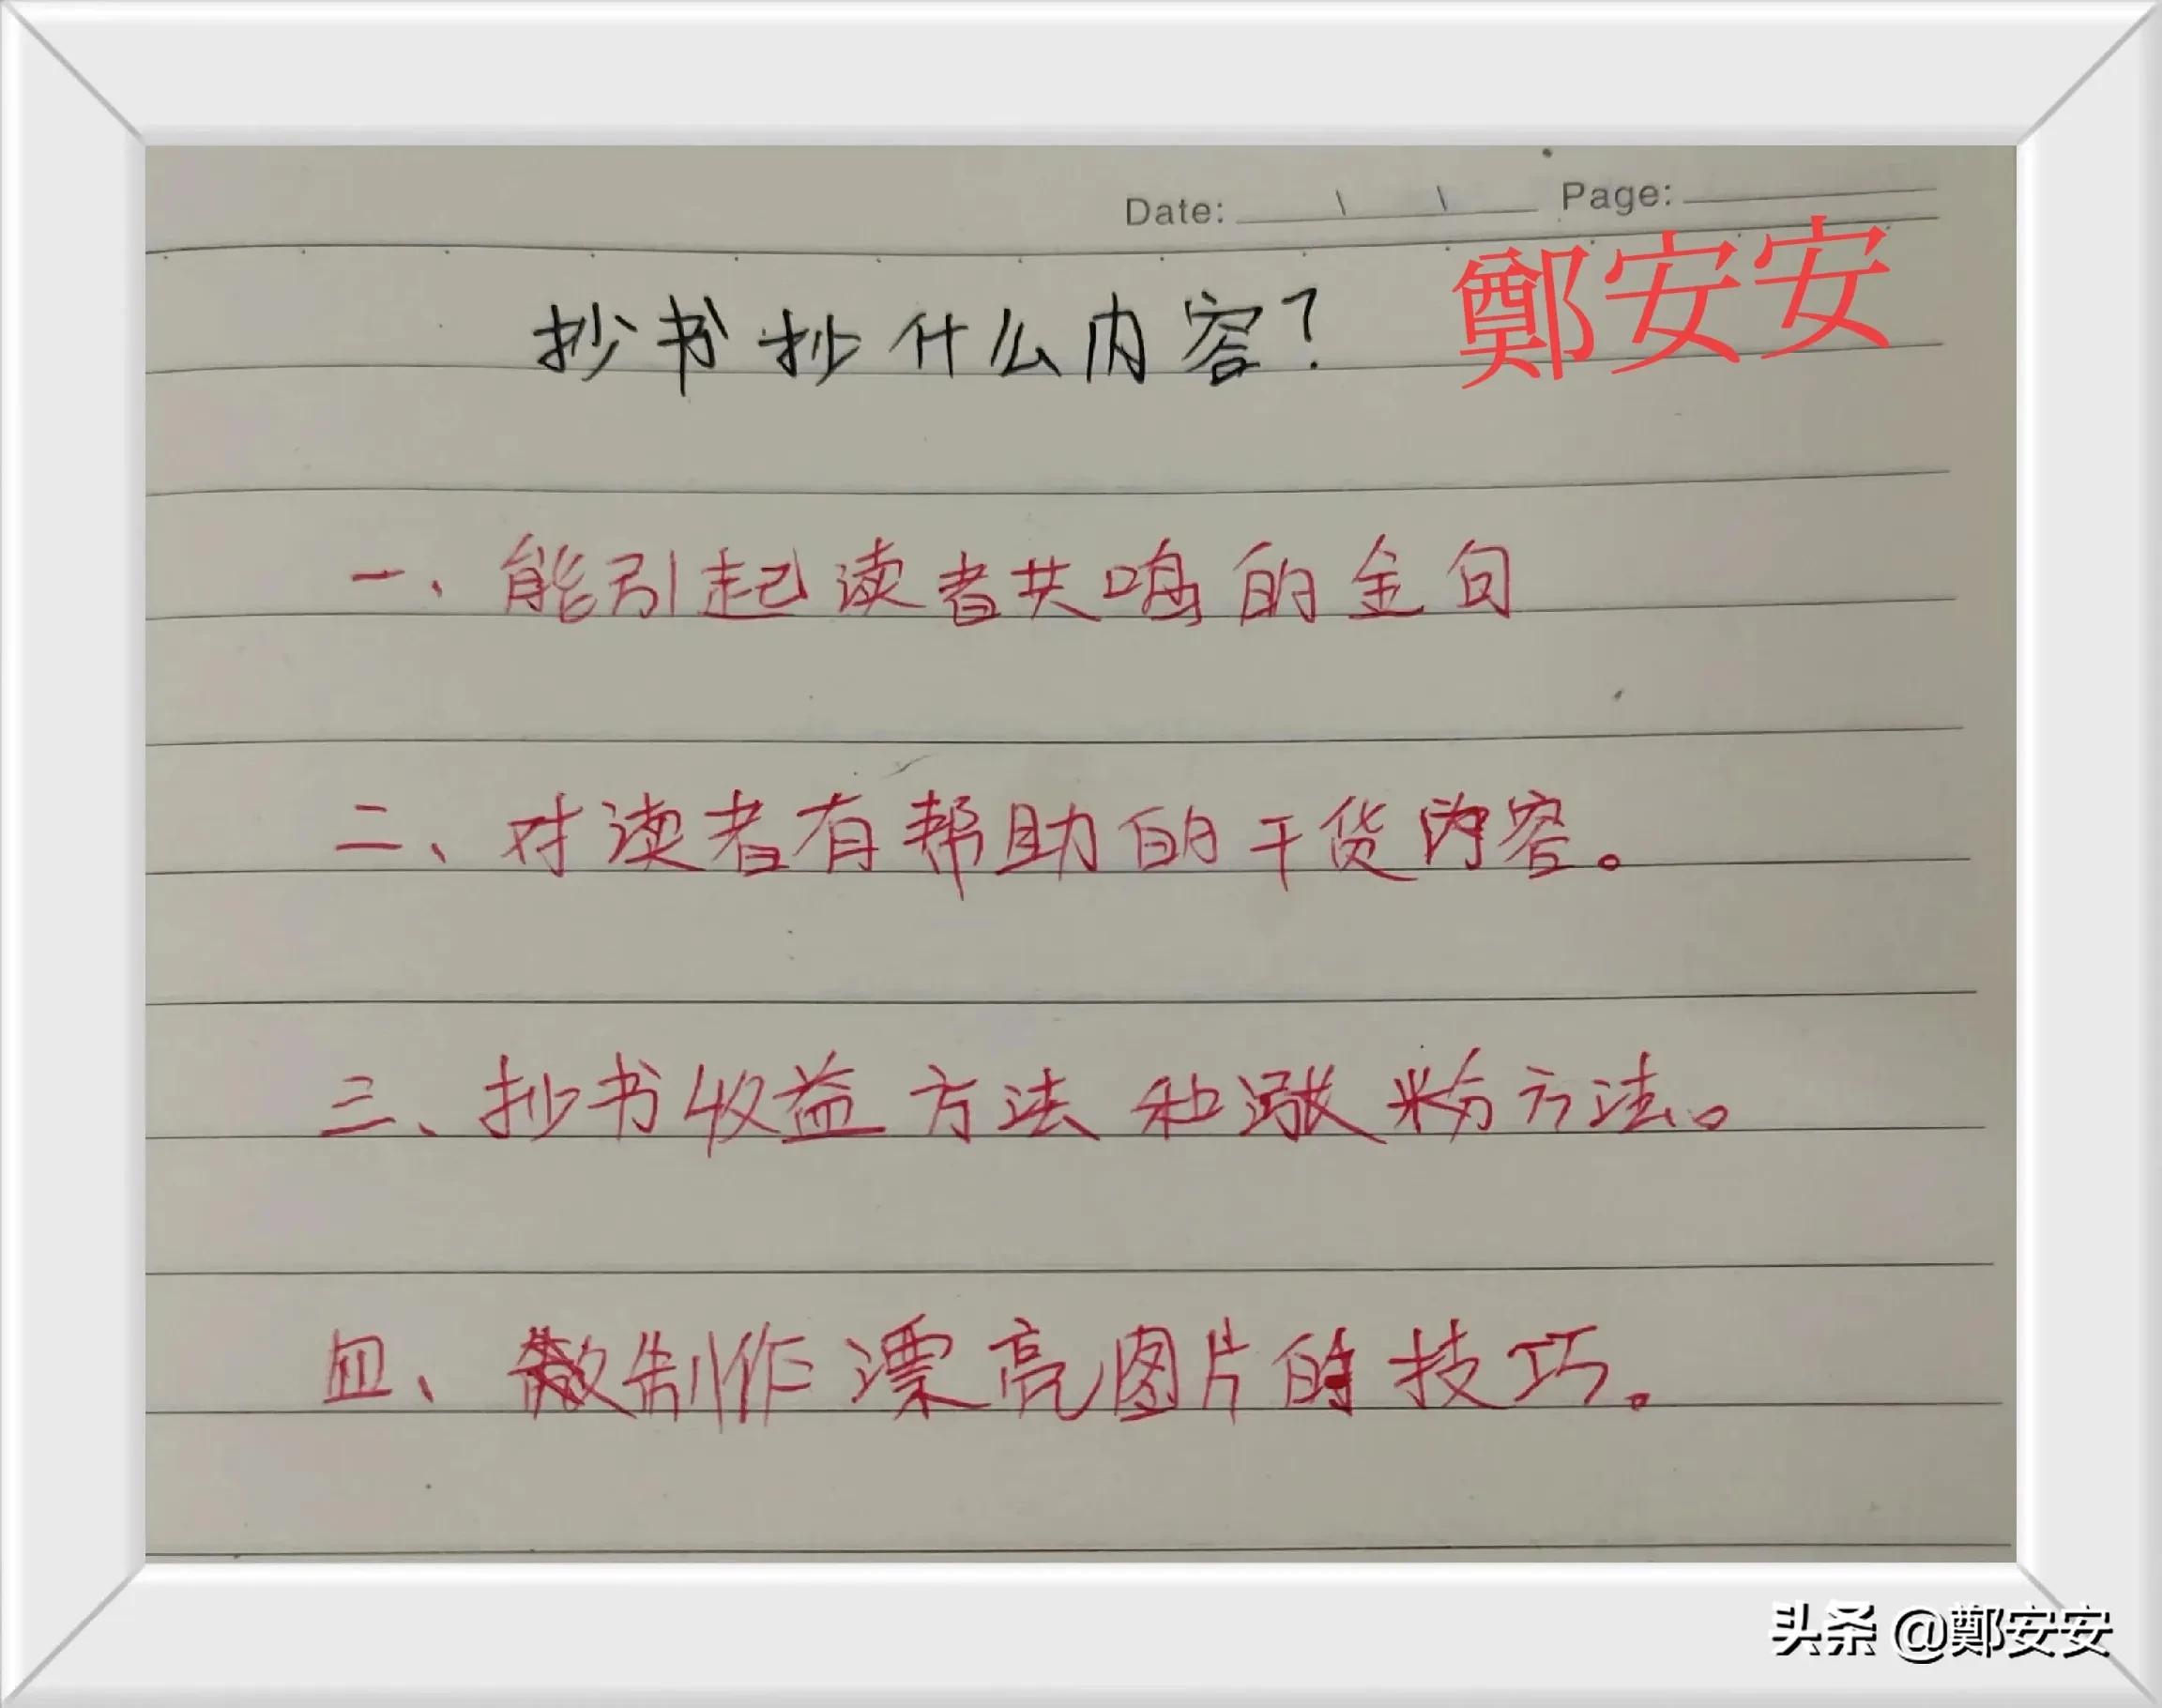 Date: \ \ Page:
鄭安安
抄书抄什么内容?
一、能引起读者共鸣的金句
二、对读者有帮助的干货内容。
三、抄书收益方法和涨粉方法。
四、做制作漂亮图片的技巧。
头条 @鄭安安